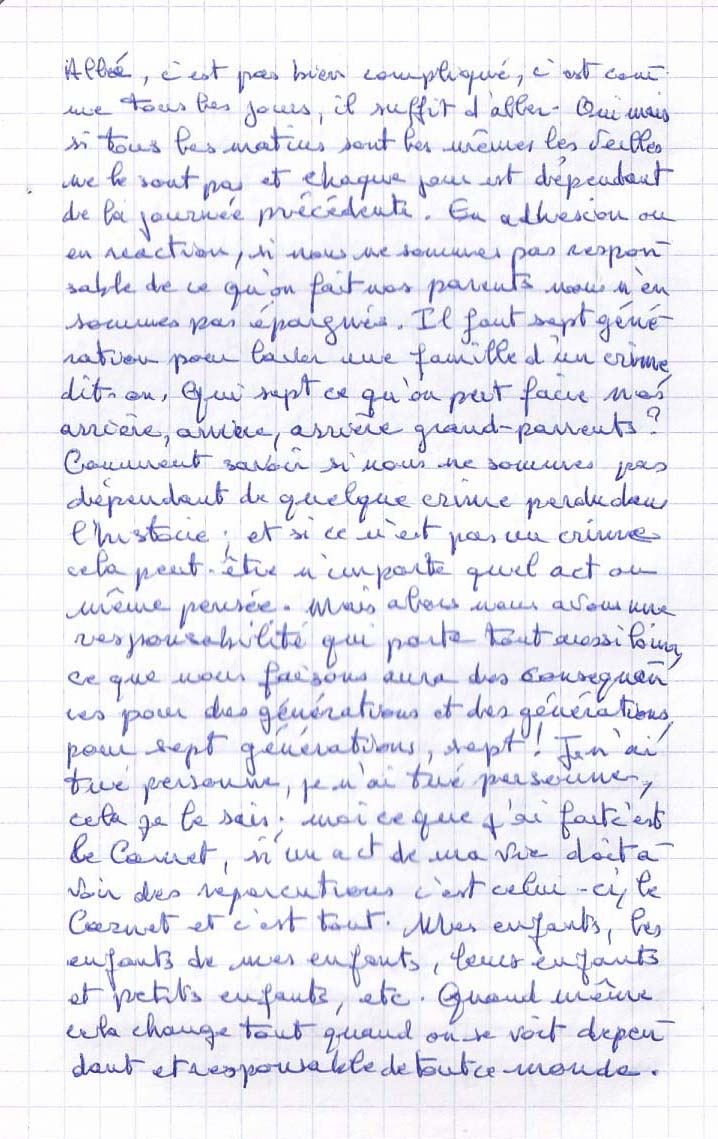 Allé, c'est pas bien compliqué, c'est com-
me tous les jours, il suffit d'aller. Oui mais
si tous les matins sont les mêmes les veilles
ne le sont pas et chaque jour est dépendant
de la journée précédente. En adhésion ou
en réaction, si nous ne sommes pas respon-
sable de ce qu'on fait nos parents nous n'en
sommes pas épargnés. Il faut sept géné-
ration pour laver une famille d'un crime
dit-on, Qui sept ce qu'on peut faire nos
arrière, arrière, arrière grand-parrents ?
Comment savoir si nous ne sommes pas
dépendant de quelque crime perdu dans
l'histoire ; et si ce n'est pas un crime
cela peut-être n'importe quel act ou
même pensée. Mais alors nous avons une
responsabilité qui porte tout aussi loing,
ce que nous faisons aura des conséquen-
ces pour des générations et des générations,
pour sept générations, sept ! Je n'ai
tué personne, je n'ai tué personne,
cela je le sais ; moi ce que j'ai fait c'est
le Carnet, si un act de ma vie doit a-
voir des réparcutions c'est celui-ci, le
Carnet et c'est tout. Mes enfants, les
enfants de mes enfants, leurs enfants
et petits enfants, etc. Quand même
cela change tout quand on se voit dépen-
dant et responsable de tout ce monde.